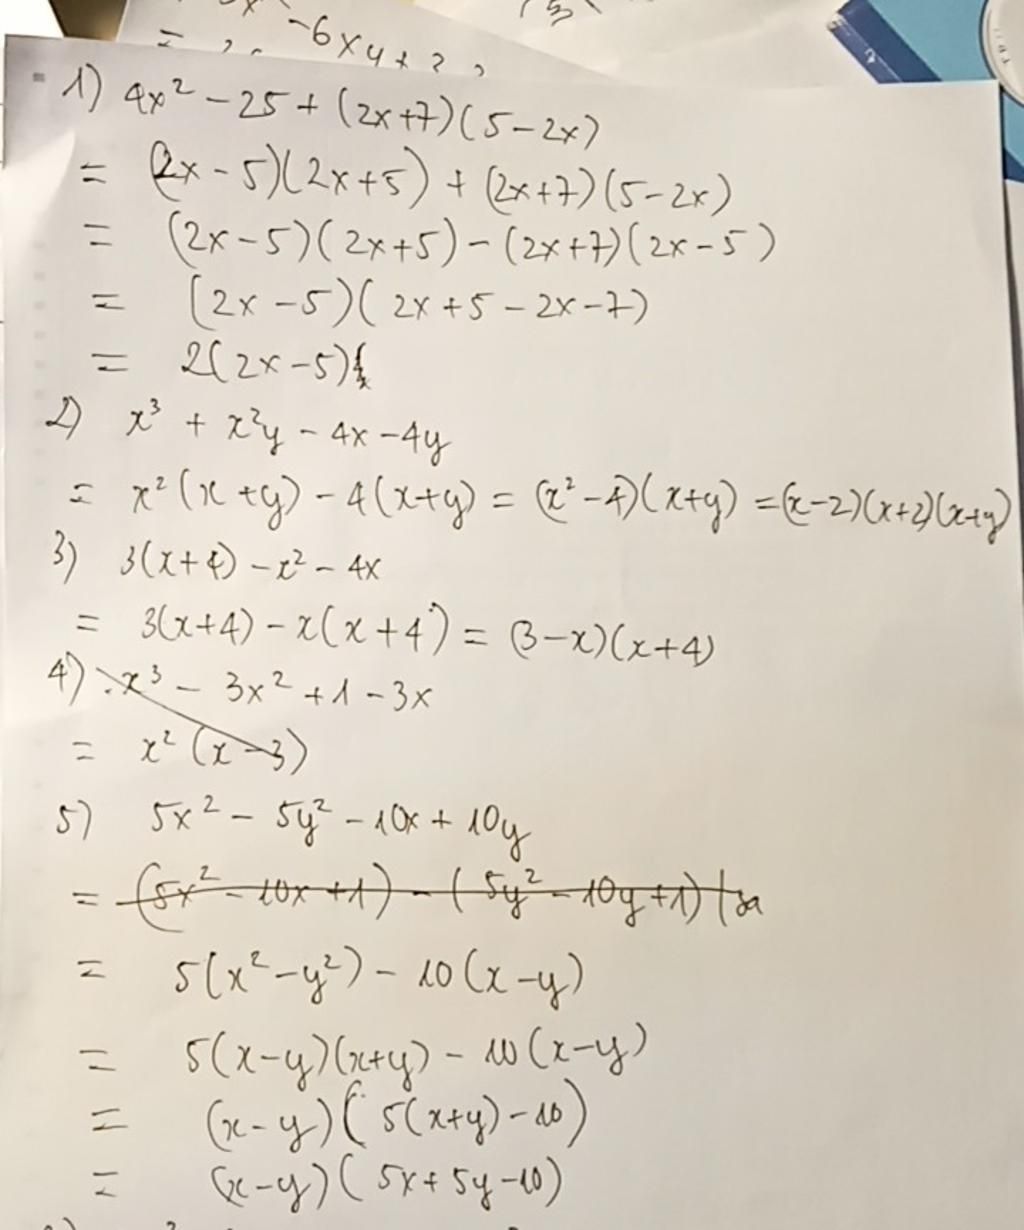 -6xy + 3
1) 4x² - 25 + (2x+7)(5-2x)
= (2x-5)(2x+5) + (2x+7)(5-2x)
= (2x-5)(2x+5) - (2x+7)(2x-5)
= (2x-5)(2x+5-2x-7)
= 2(2x-5)
2) x³ + x²y - 4x - 4y
= x²(x+y) - 4(x+y) = (x²-4)(x+y) = (x-2)(x+2)(x+y)
3) 3(x+4) - x² - 4x
= 3(x+4) - x(x+4) = (3-x)(x+4)
4) x³ - 3x² + 1 - 3x
= x²(x-3)
5) 5x² - 5y² - 10x + 10y
= (5x² - 10x + 1) - (5y² - 10y + 1)
= 5(x²-y²) - 10(x-y)
= 5(x-y)(x+y) - 10(x-y)
= (x-y)(5(x+y)-10)
= (x-y)(5x+5y-10)